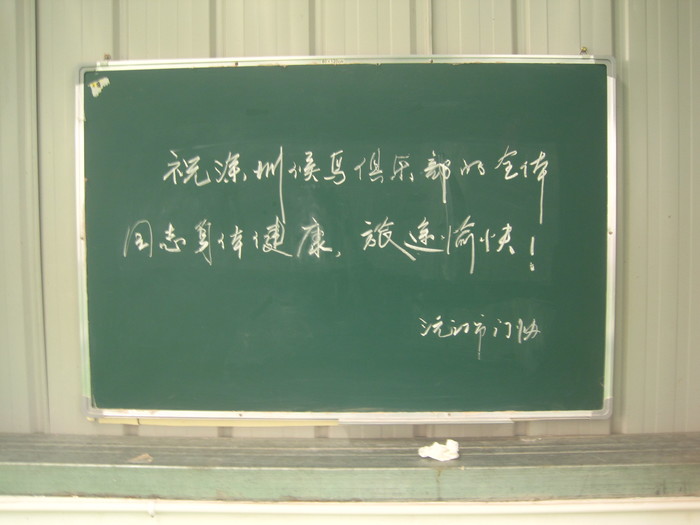 祝深圳候鸟俱乐部的全体
同志身体健康，旅途愉快！
沅江市门协